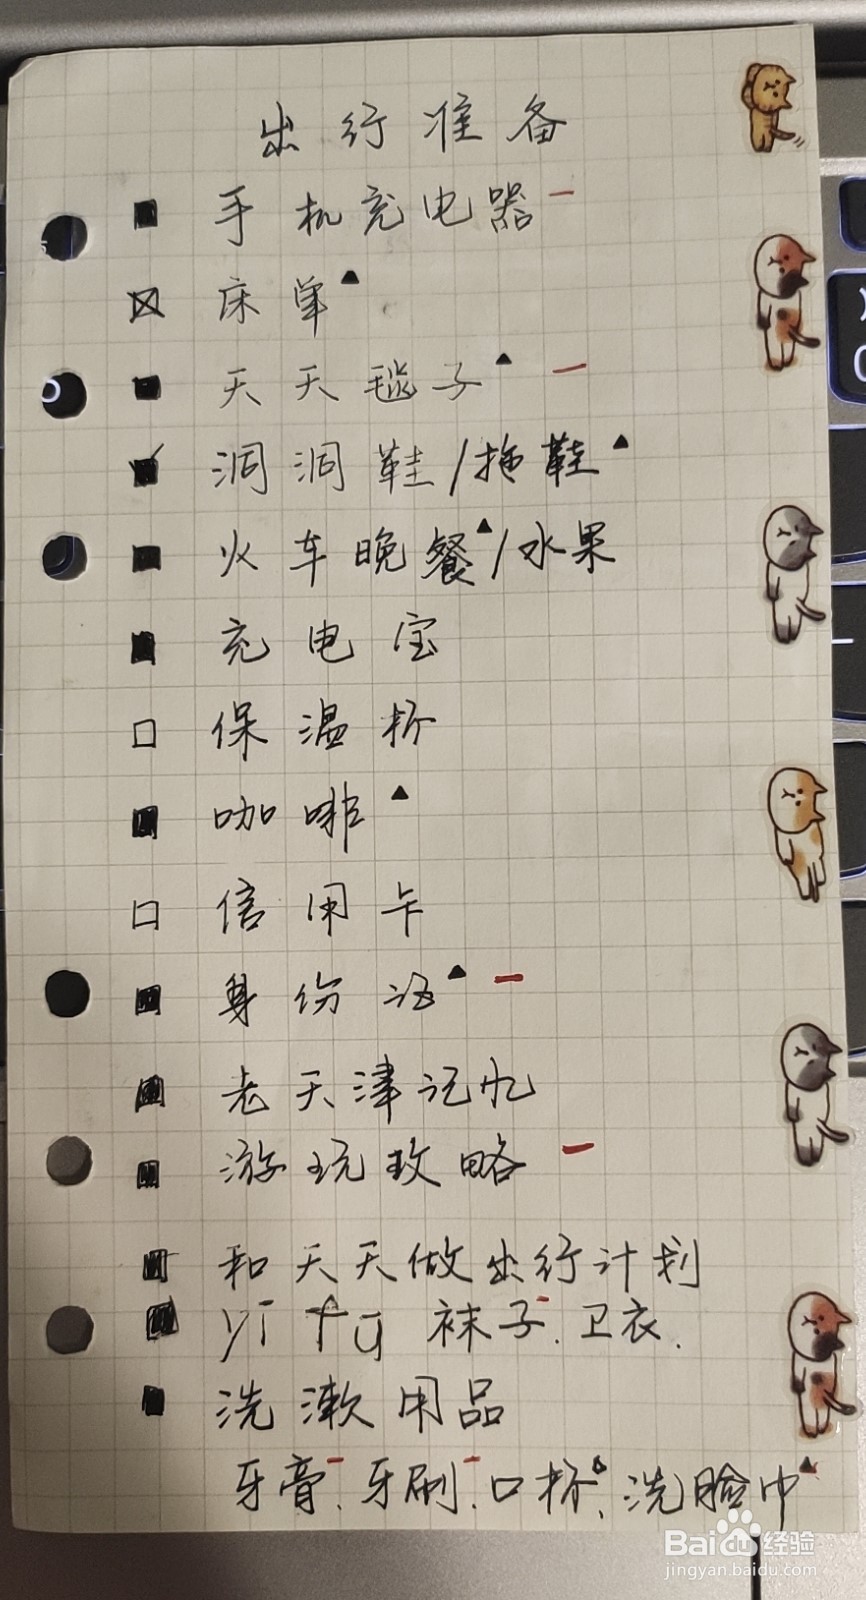 出行准备
手机充电器
床单
天天毯子
洞洞鞋/拖鞋
火车晚餐/水果
充电宝
保温杯
咖啡
信用卡
身份证
老天津记忆
游玩攻略
和天天做出行计划
yī fu 袜子.卫衣.
洗漱用品
牙膏、牙刷、口杯、洗脸巾
Baidu经验
jingyan.baidu.com